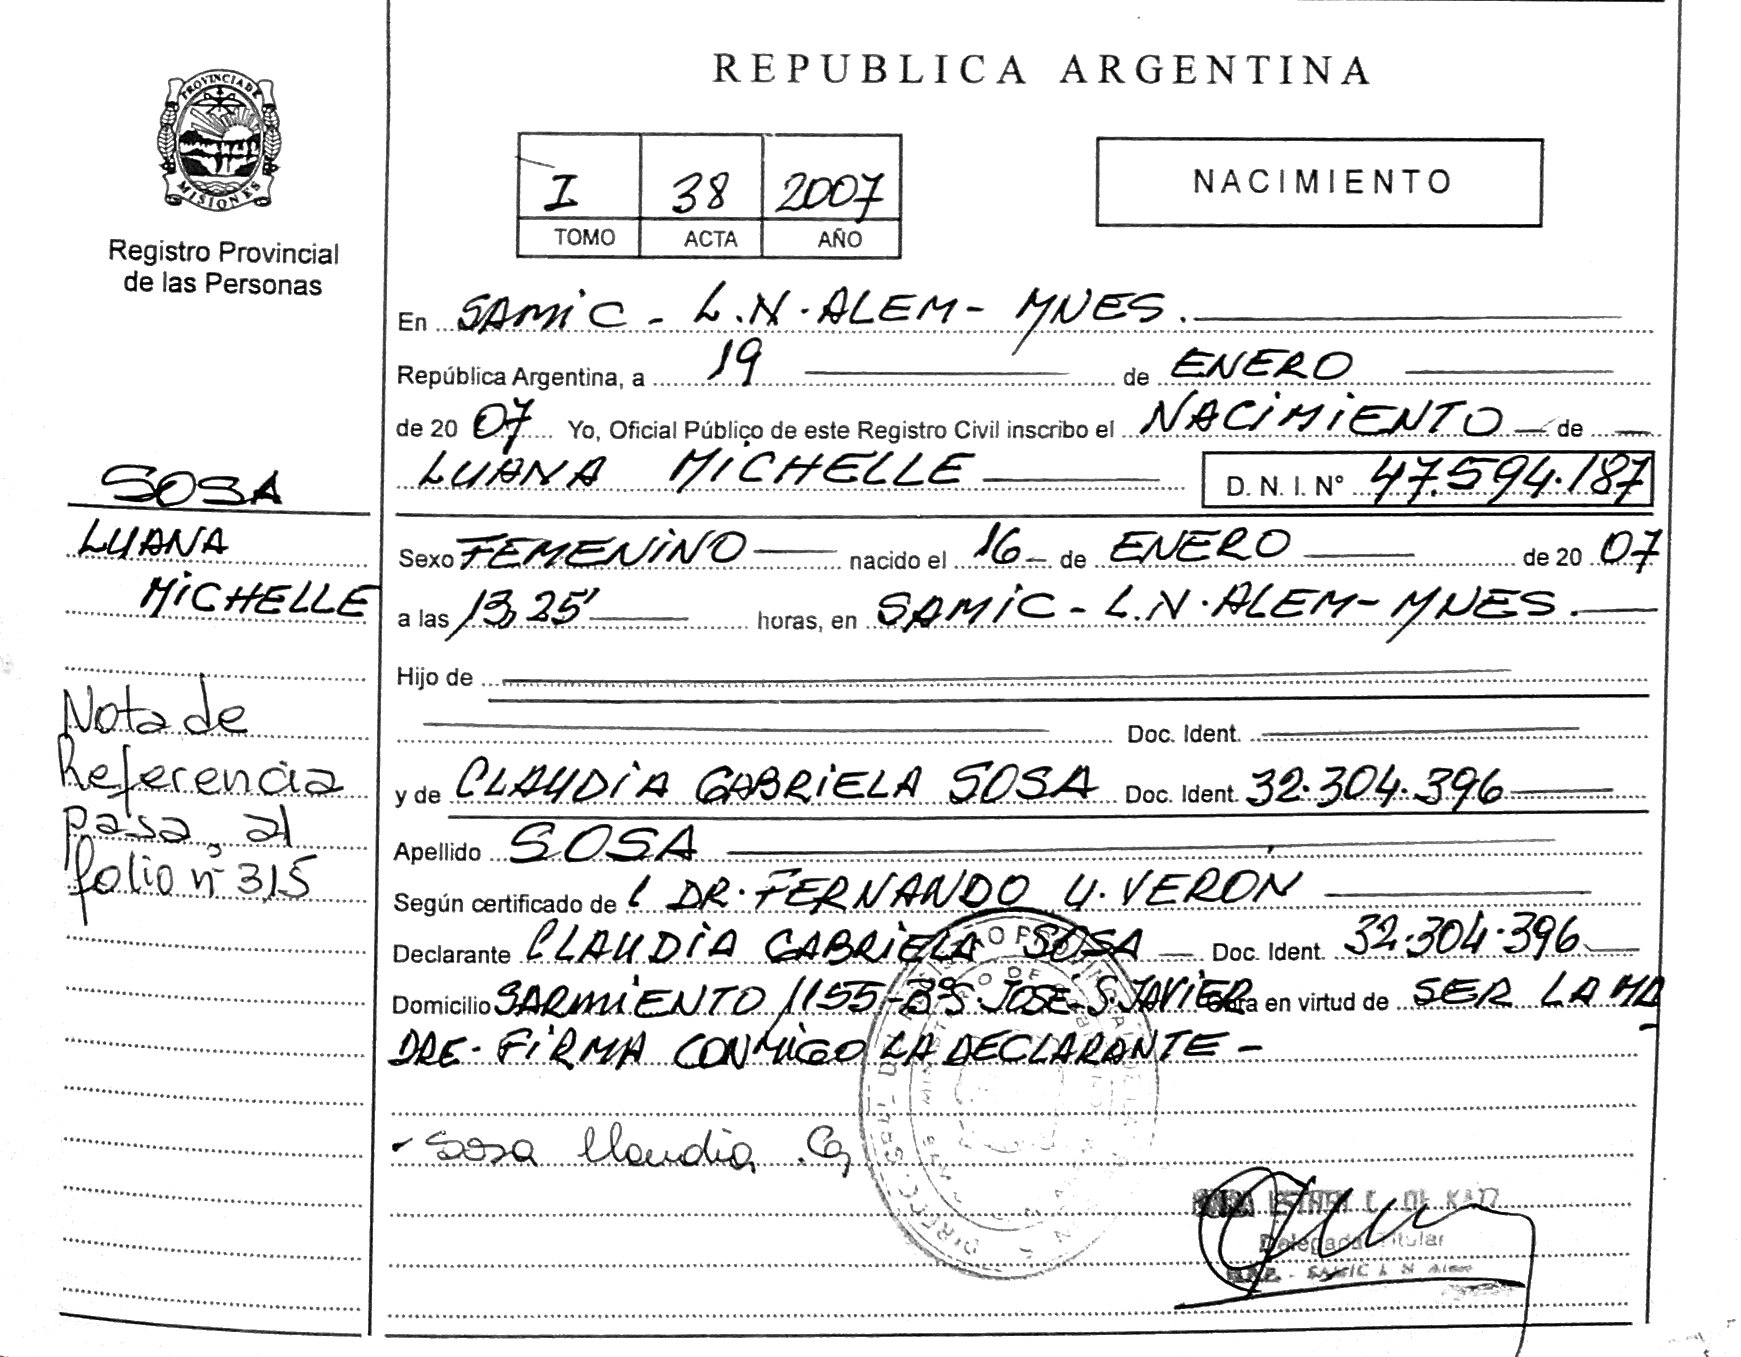 REPUBLICA ARGENTINA
PROVINCIA DE
MISIONES
Registro Provincial
de las Personas
I 38 2007
TOMO ACTA AÑO
NACIMIENTO
En SAMIC - L.N. ALEM - MNES.
República Argentina, a 19 de ENERO
de 2007 Yo, Oficial Público de este Registro Civil inscribo el NACIMIENTO de
LUANA MICHELLE D. N. I. N° 47.594.187
SOSA
LUANA
MICHELLE
Sexo FEMENINO nacido el 16 de ENERO de 2007
a las 13,25' horas, en SAMIC - L.N. ALEM - MNES.
Hijo de
Doc. Ident.
y de CLAUDIA GABRIELA SOSA Doc. Ident. 32.304.396
Nota de
Referencia
pasa al
folio nº 315
Apellido SOSA
Según certificado de DR. FERNANDO U. VERÓN
Declarante CLAUDIA GABRIELA SOSA Doc. Ident. 32.304.396
Domicilio SARMIENTO 1155 - Bº S. JOSE - S. JAVIER Obra en virtud de SER LA MA
DRE - FIRMA CONMIGO LA DECLARANTE -
Sosa Claudia G
ESTHER DE KATZ
Delegada Titular
SAMIC L N Alem